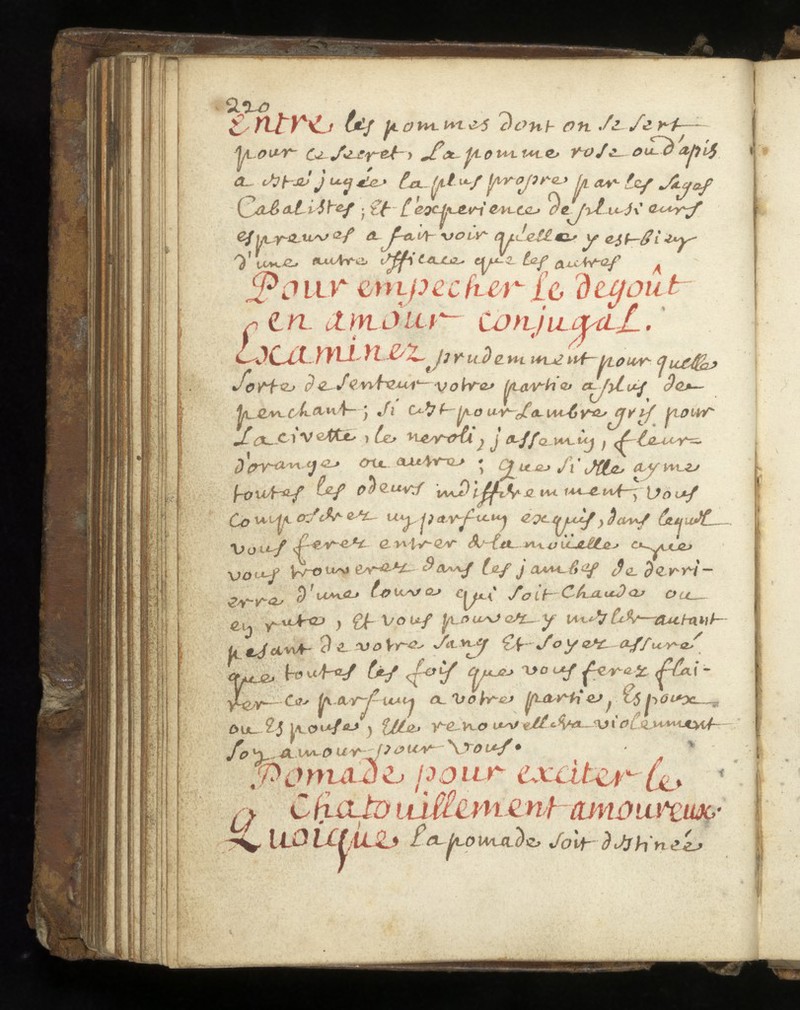 220
Entre les pommes dont on se sert
pour ce secret, La pomme rose ou d'apis
a esté jugée la plus propre par les sages
Cabalistes ; Et l'experience de plusieurs
espreuves a fait voir qu'elle y est bien
d'une autre efficace que les autres
Pour empecher le degoût
en amour conjugal.
Examinez prudemment pour quelle
sorte de senteur votre partie a plus de
penchant ; si c'est pour L'ambre gris pour
La civette, le neroli, jassemin, fleur=
d'orange ou autre ; Que si Elle ayme
toutes les odeurs indifferemment, vous
composerez un parfum exquis, dans lequel
vous ferez entrer de la moüelle que
vous trouverez dans les jambes de derri-
erre d'une louve qui soit Chaude ou
en rute, Et vous pouvez y mesler autant
pesant de votre sang Et soyez assuré
que toutes les fois que vous ferez flai-
rer ce parfum a votre partie, Espoux
ou Espouse, Elle renouvellera violemment
son amour pour Vous.
Pomade pour exciter le
Chatouillement amoureux.
Quoique La pomade soit destinée